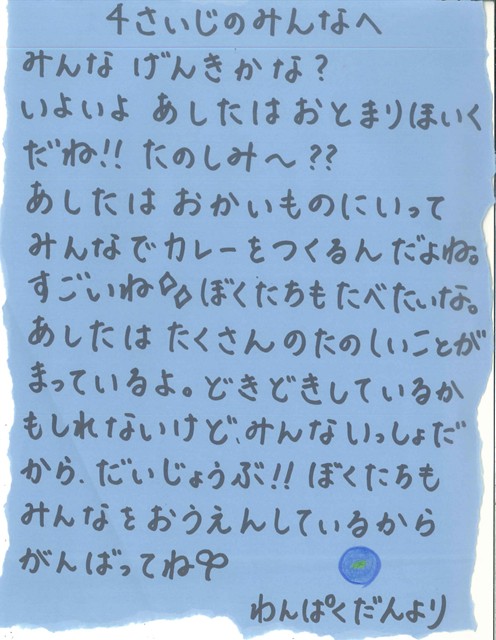 4さいじのみんなへ
みんな げんきかな?
いよいよ あしたは おとまりほいく
だね!! たのしみ〜??
あしたは おかいものにいって
みんなでカレーをつくるんだよね。
すごいね ぼくたちもたべたいな。
あしたは たくさんのたのしいことが
まっているよ。どきどきしているか
もしれないけど、みんないっしょだ
から、だいじょうぶ!! ぼくたちも
みんなをおうえんしているから
がんばってね
わんぱくだんより